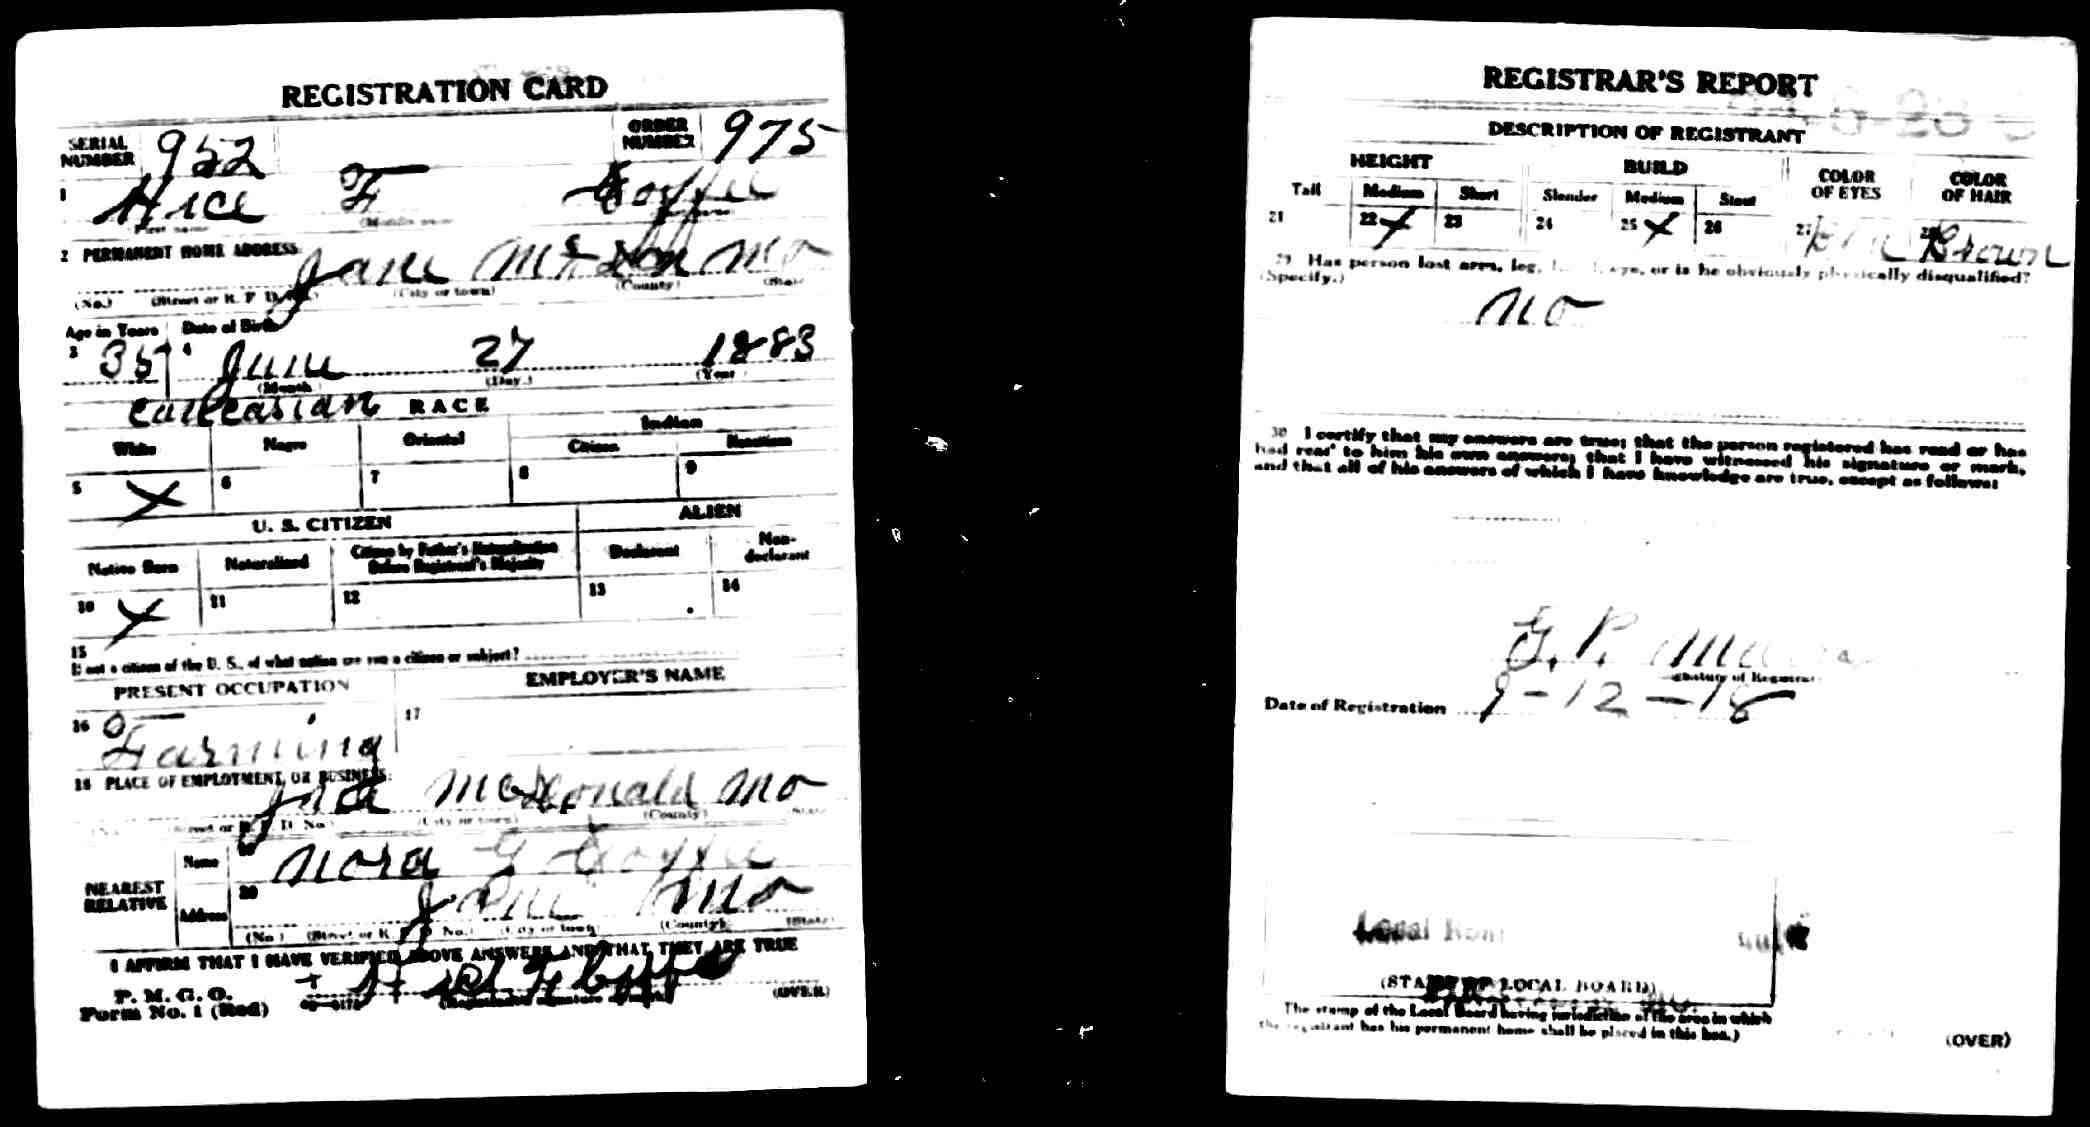 REGISTRATION CARD
SERIAL NUMBER 952 ORDER NUMBER 975
1 Hice F Goffee
First name (Middle name)
2 PERMANENT HOME ADDRESS
Jane Mc Don Mo
(No.) (Street or R. F. D. No.) (City or town) (County) (State)
Age in Years Date of Birth
3 35 4 June 27 1883
(Month) (Day.) (Year)
Caucasian RACE
White Negro Oriental Indian
Citizen Noncitizen
5 X 6 7 8 9
U. S. CITIZEN ALIEN
Native Born Naturalized Citizen by Father's Naturalization Before Registrant's Majority Declarant Non-declarant
10 X 11 12 13 14
15
If not a citizen of the U. S., of what nation are you a citizen or subject?
PRESENT OCCUPATION EMPLOYER'S NAME
16 Farming 17
18 PLACE OF EMPLOYMENT OR BUSINESS:
McDonald Mo
(Street or R. F. D. No.) (City or town) (County) State
NEAREST RELATIVE
Name 19 Nora G
Address 20 Jane Mo
(No.) (Street or R. F. D. No.) (City or town) (County) (State)
I AFFIRM THAT I HAVE VERIFIED ABOVE ANSWERS AND THAT THEY ARE TRUE
P. M. G. O.
Form No. 1 (Red) (Registrant's signature or mark) (OVER)
REGISTRAR'S REPORT
DESCRIPTION OF REGISTRANT
HEIGHT BUILD COLOR OF EYES COLOR OF HAIR
Tall Medium Short Slender Medium Stout
21 22 X 23 24 25 X 26 27 28 Brown
29 Has person lost arm, leg, eye, or is he obviously physically disqualified?
(Specify.)
No
30 I certify that my answers are true; that the person registered has read or has
had read to him his own answers; that I have witnessed his signature or mark,
and that all of his answers of which I have knowledge are true, except as follows:
G. P.
Signature of Registrar
Date of Registration 9-12-18
Local
(STAMP OF LOCAL BOARD)
The stamp of the Local Board having jurisdiction of the area in which
the registrant has his permanent home shall be placed in this box.)
(OVER)